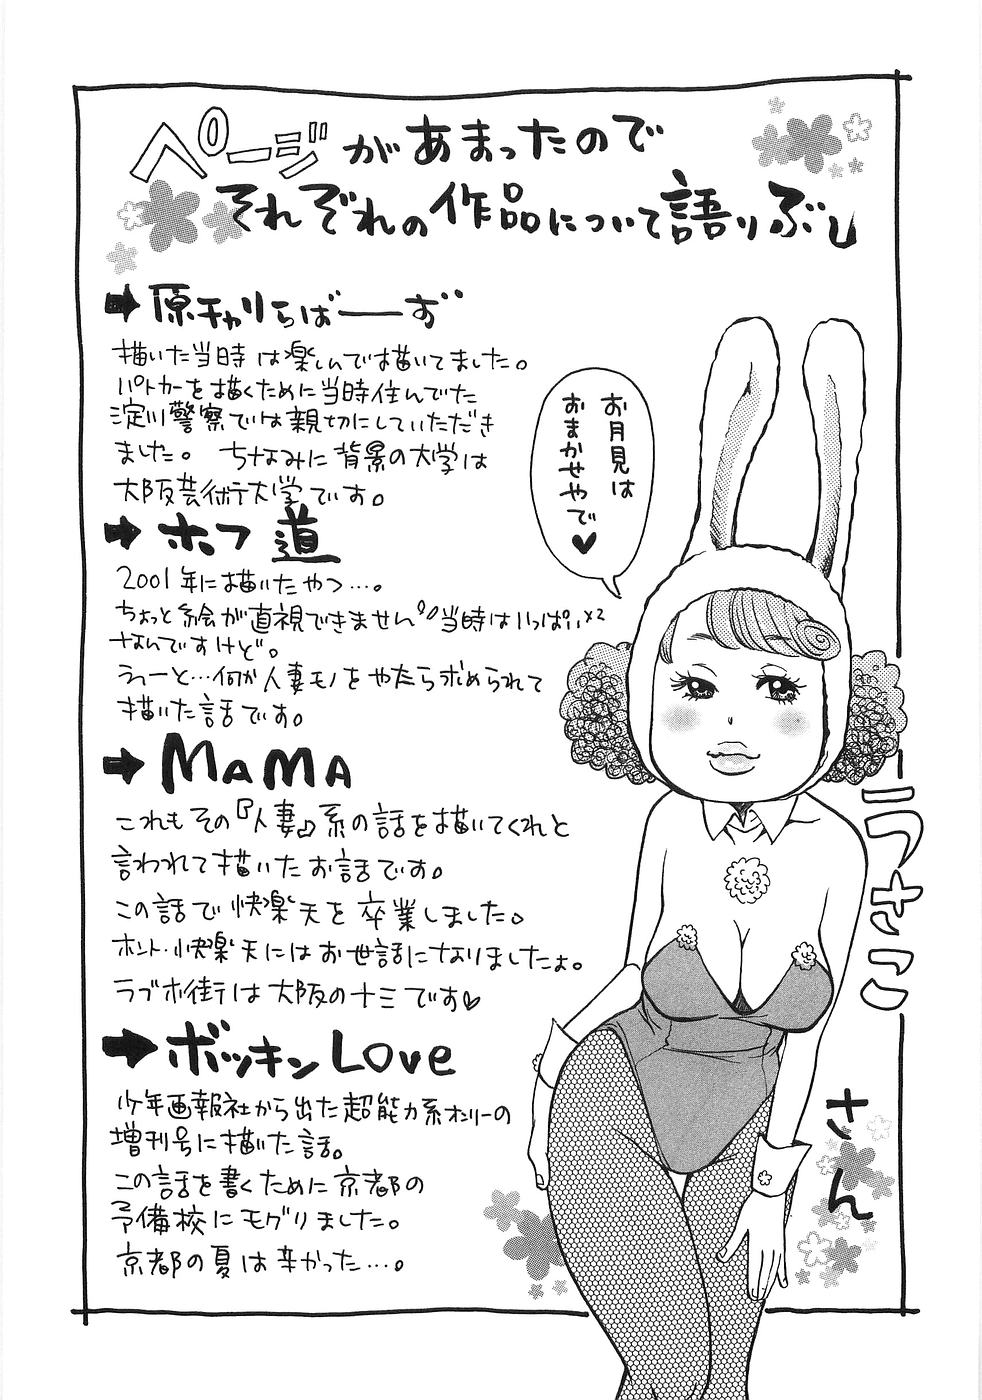 ページがあまったので
それぞれの作品について語りぶし
➡原チャリらばーーず
描いた当時は楽しんで描いてました。
パトカーを描くために当時住んでた
淀川警察では親切にしていただき
ました。 ちなみに背景の大学は
大阪芸術大学です。
➡ホフ道
2001年に描いたやつ…。
ちょっと絵が直視できません 当時はいっぱい×2
なんですけど。
うーーと…何か人妻モノをやたら求められて
描いた話です。
➡MAMA
これもその『人妻』系の話を描いてくれと
言われて描いたお話です。
この話で快楽天を卒業しました。
ホント快楽天にはお世話になりましたよ。
ラブホ街は大阪の十三です♡
➡ボッキンLove
少年画報社から出た超能力系オンリーの
増刊号に描いた話。
この話を書くために京都の
予備校にモグリました。
京都の夏は辛かった…。
お月見は
おまかせやで♥
ラさこ
さん